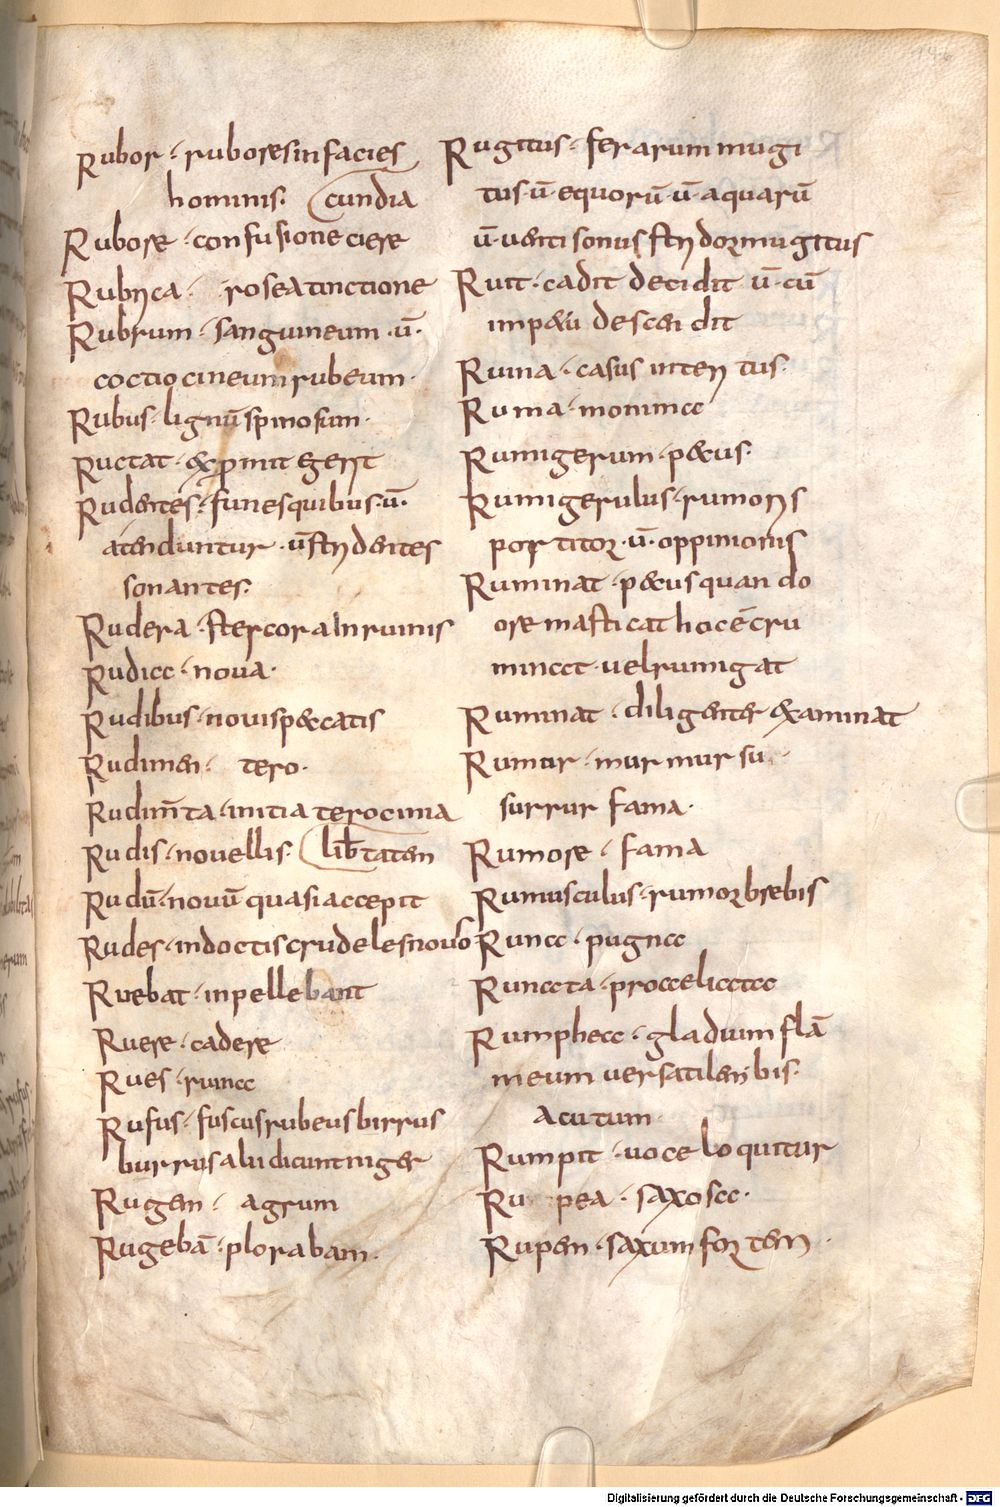 Rubor · rubores in facies
hominis · cundia
Rubore · confusione ciere
Rubrica · rosea tinctione
Rubrum · sanguineum · ū ·
coctiocineum rubeum ·
Rubus · lignū spinosum ·
Ructat · exprimit egerit
Rudentes · funes quibus · ū ·
atenduntur · ū stridentes
sonantes ·
Rudera · stercora in ruinis
Rudica · nova ·
Rudibus · novis peccatis
Rudimen · tero ·
Rudim̄ta · initia terocinia
Rudis · novellis · lib̄tatem
Rudū · novū quasi accepit
Rudes · indoctis crudeles novo
Ruebat · inpellebant
Ruere · cadere
Rues · ruina
Rufus · fuscus rubeus birrus
burrus alii dicunt niger
Rugem · agrum
Rugebā · plorabam ·
Rugitus · ferarum mugi
tus · ū · equorū · ū · aquarū
ū · venti sonus stridor mugitus
Ruit · cadit decidit ū · cū
impetu descendit
Ruina · casus interitus ·
Ruma · momina
Rumigerum · pecus ·
Rumigerulus · rumoris
portitor · ū · oppinionis
Ruminat · pecus quando
ore masticat hoc ē cru
minat · vel rumigat
Ruminat · diligenter examinat
Rumur · murmur su
surrur fama ·
Rumore · fama
Rumusculus · rumor brebis
Runa · pugna
Runata · proeeliata
Rumphea · gladium flā
meum versatilem bis ·
acutum ·
Rumpit · voce loquitur
Ru pea · saxosa ·
Rupem · saxum fortem ·
Digitalisierung gefördert durch die Deutsche Forschungsgemeinschaft - DFG